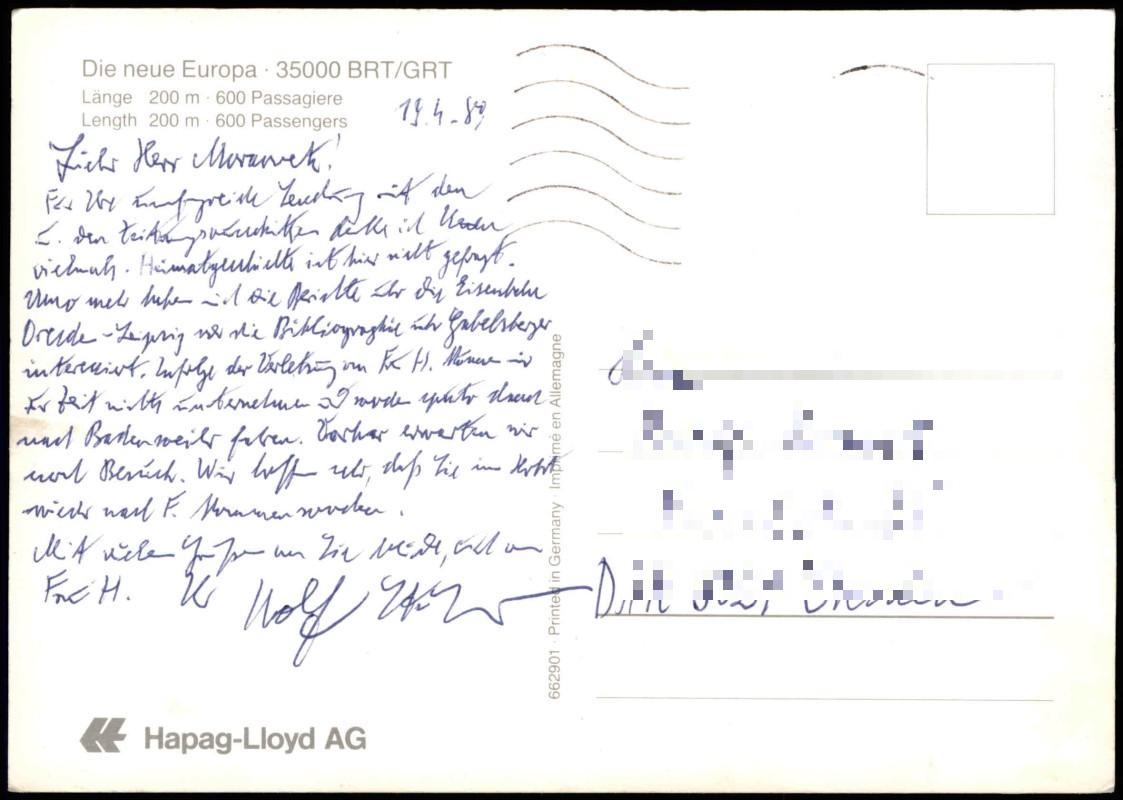 Die neue Europa · 35000 BRT/GRT
Länge 200 m · 600 Passagiere
Length 200 m · 600 Passengers
19.4.89
Herr
Für Ihre umfangreiche Sendung mit den
u. den Zeitungsausschnitten danke ich Ihnen
vielmals. Heimatgeschichte ist hier nicht gefragt.
Umso mehr haben mich die Berichte über die Eisenbahn
Dresden-Leipzig und die Bibliographie über Gabelsberger
interessiert. Infolge der Verletzung von Frl. H. können wir
zur Zeit nichts unternehmen und werden später
nach Badenweiler fahren. Vorher erwarten wir
noch Besuch. Wir hoffen sehr, daß Sie im Herbst
wieder nach F. kommen werden.
Mit vielen Grüßen an Sie beide, auch von
Frl. H. Ihr Wolf
662901 · Printed in Germany · Imprimé en Allemagne
Hapag-Lloyd AG